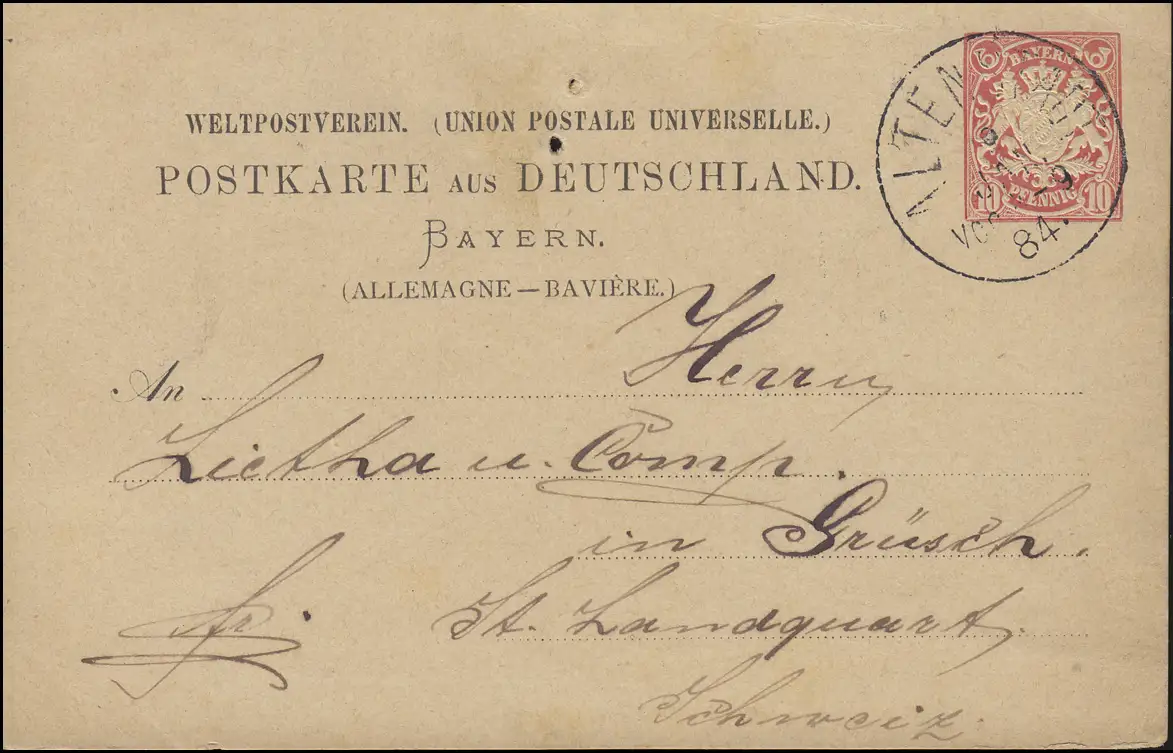 WELTPOSTVEREIN. (UNION POSTALE UNIVERSELLE.)
POSTKARTE AUS DEUTSCHLAND.
BAYERN.
(ALLEMAGNE—BAVIÈRE.)
BAYERN
PFENNIG
10 10
84.
An Herrn
Lietha u. Comp.
in Grüsch.
fr. St. Landquart.
Schweiz.